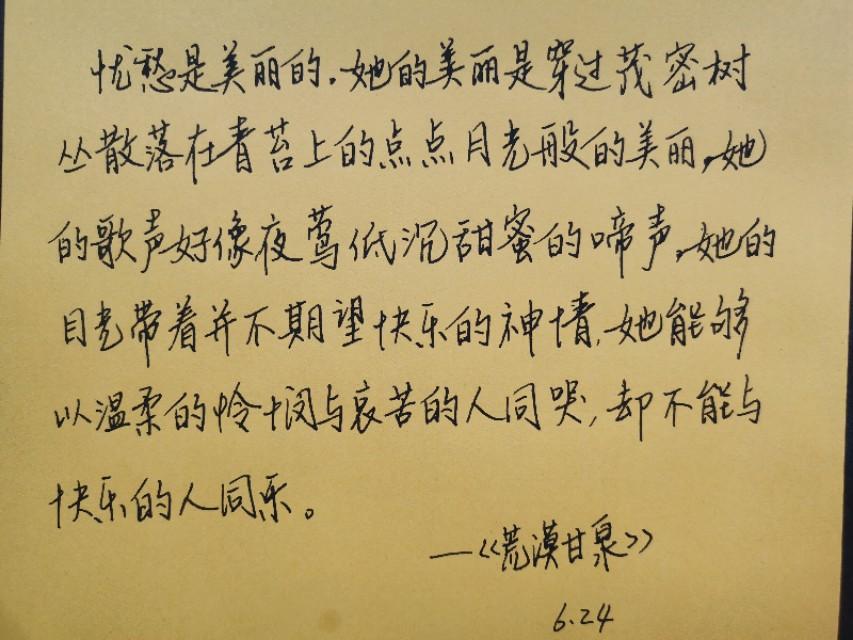 忧愁是美丽的.她的美丽是穿过茂密树
丛散落在青苔上的点点月光般的美丽,她
的歌声好像夜莺低沉甜蜜的啼声,她的
目光带着并不期望快乐的神情,她能够
以温柔的怜悯与哀苦的人同哭,却不能与
快乐的人同乐。
—《荒漠甘泉》
6.24